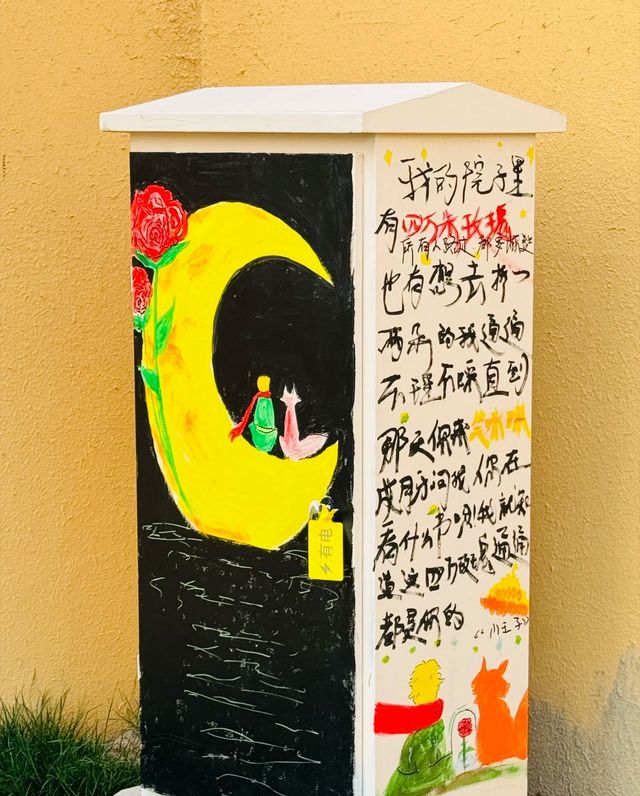 我的院子里
有四万朵玫瑰
所有人路过都
也有想去折一
两朵的我通通
不理不睬直到
那天你笑咪咪
月牙问我你在
看什么书 我就知
道这四万玫瑰通通
都是你的
《小王子》
有电